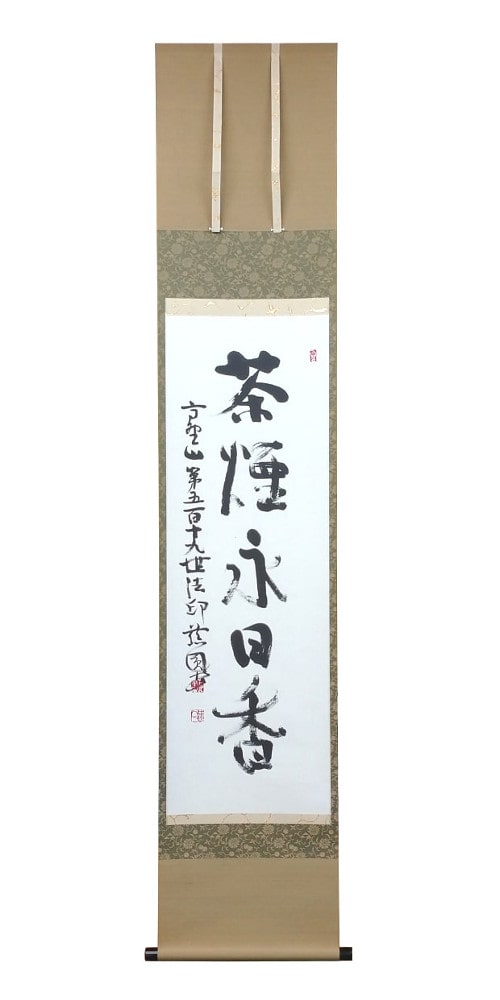 茶煙永日香
山第五百十九世法印慈園書